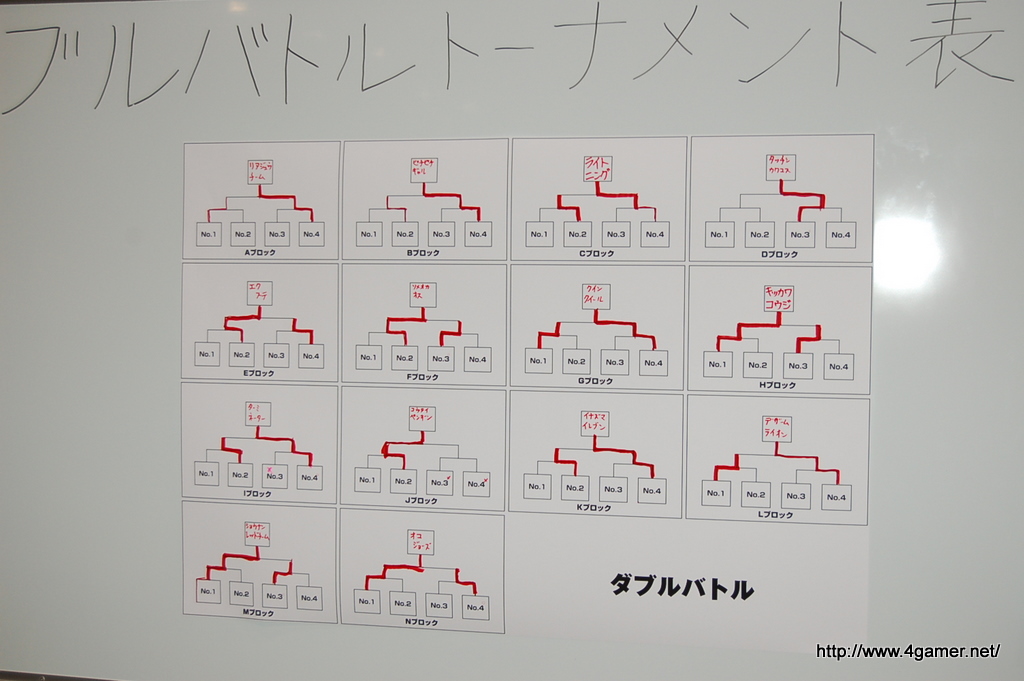 ブルバトルトーナメント表
リアジュウ
チーム
No.1 No.2 No.3 No.4
Aブロック
No.1 No.2 No.3 No.4
Bブロック
ライト
ニング
No.1 No.2 No.3 No.4
Cブロック
No.1 No.2 No.3 No.4
Dブロック
No.1 No.2 No.3 No.4
Eブロック
No.1 No.2 No.3 No.4
Fブロック
クイン
クイール
No.1 No.2 No.3 No.4
Gブロック
キッカワ
コウジ
No.1 No.2 No.3 No.4
Hブロック
ターミ
ネーター
No.1 No.2 No.3 No.4
Iブロック
コウテイ
ペンギン
No.1 No.2 No.3 No.4
Jブロック
イナズマ
イレブン
No.1 No.2 No.3 No.4
Kブロック
No.1 No.2 No.3 No.4
Lブロック
ショウナン
レッドチーム
No.1 No.2 No.3 No.4
Mブロック
オコ
ジョーズ
No.1 No.2 No.3 No.4
Nブロック
ダブルバトル
http://www.4gamer.net/